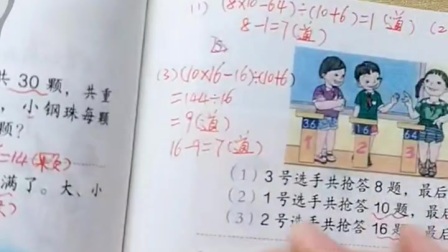 (1) (8×10-64)÷(10+6)=1(道) (2
8-1=7(道)
共 30 颗，共重
，小钢珠每颗
颗？
=14(颗)
满了。大、小
(3)(10×16-16)÷(10+6)
=144÷16
=9(道)
16-9=7(道)
36 16 64
1 2 3
(1) 3号选手共抢答8题，最后
(2) 1号选手共抢答10题，最后
(3) 2号选手共抢答16题，最后